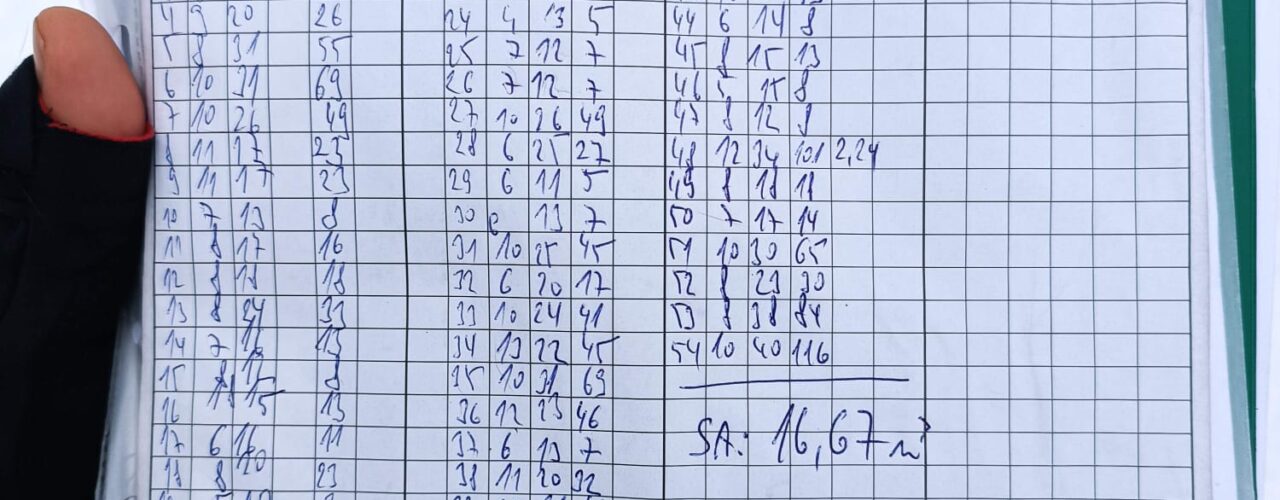 4 9 20 26 24 4 13 5 44 6 14 8
5 8 31 55 25 7 12 7 45 8 15 13
6 10 31 69 26 7 12 7 46 5 15 8
7 10 26 49 27 10 26 49 47 8 12 8
8 11 17 23 28 6 25 27 48 12 34 101 2,24
9 11 17 23 29 6 11 5 49 8 18 18
10 7 13 8 30 6 13 7 50 7 17 14
11 8 17 16 31 10 25 45 51 10 30 65
12 8 18 18 32 6 20 17 52 8 23 30
13 8 24 33 33 10 24 41 53 8 38 84
14 7 16 13 34 13 22 45 54 10 40 116
15 8 13 8 35 10 31 69
16 11 15 13 36 12 23 46
SA: 16,67 m³
17 6 16 11 37 6 13 7
18 8 20 23 38 11 20 32